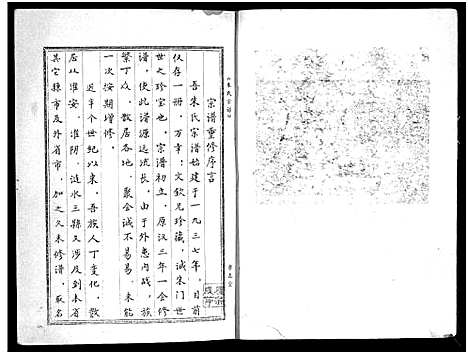 宗谱重修序言
吾朱氏宗谱始建于一九三七年。目前
仅存一册，万幸：文钦兄珍藏，诚朱门世
世之珍宝也，宗谱初立，原议三年一会修
谱，使此谱源远流长，由于外患内战，族
繁丁众，散居各地，聚会诚不易易，未能
一次按期增修。
近半个世纪以来，吾族人丁变化，散
居从淮安、淮阴、涟水三县又涉及到本省
其它县市及外省市，加之久未修谱，取名
朱氏宗谱